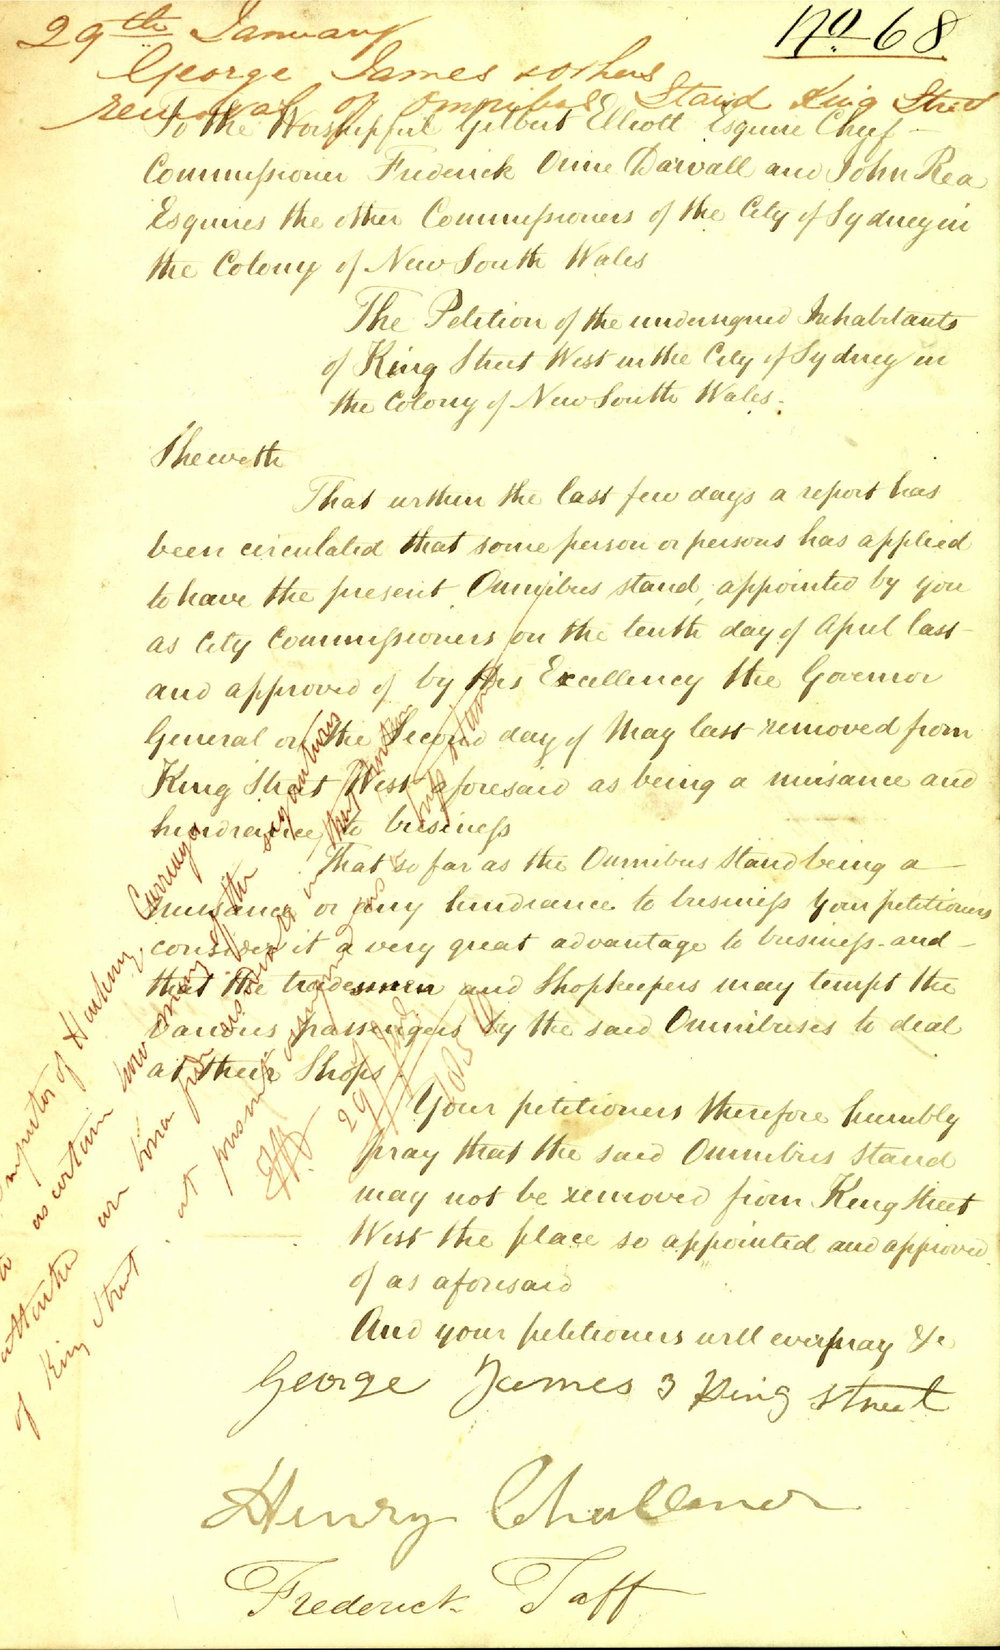 29th January
No 68
George James & others
removal of Omnibus Stand King Street
To the Worshipful Gilbert Elliott Esquire Chief
Commissioner Frederick Orme Darvall and John Rea
Esquires the other Commissioners of the City of Sydney in
the Colony of New South Wales
The Petition of the undersigned Inhabitants
of King Street West in the City of Sydney in
the Colony of New South Wales.
Sheweth
That within the last few days a report has
been circulated that some person or persons has applied
to have the present Omnibus stand, appointed by you
as City Commissioners on the tenth day of April last
and approved of by His Excellency the Governor
General on the Second day of May last removed from
King Street West aforesaid as being a nuisance and
hindrance to business
That so far as the Omnibus Stand being a
nuisance or any hindrance to business your petitioners
consider it a very great advantage to business and
that the tradesmen and Shopkeepers may tempt the
various passengers by the said Omnibuses to deal
at their Shops
Your petitioners therefore humbly
pray that the said Omnibus stand
may not be removed from King Street
West the place so appointed and approved
of as aforesaid
And your petitioners will ever pray &c
George James 3 King Street
Henry Challenor
Frederick Taff
Inspector of Hackney Carriages
to ascertain how many of the signatures
attached are bona fide residents in that portion
of King Street at present assigned as
29